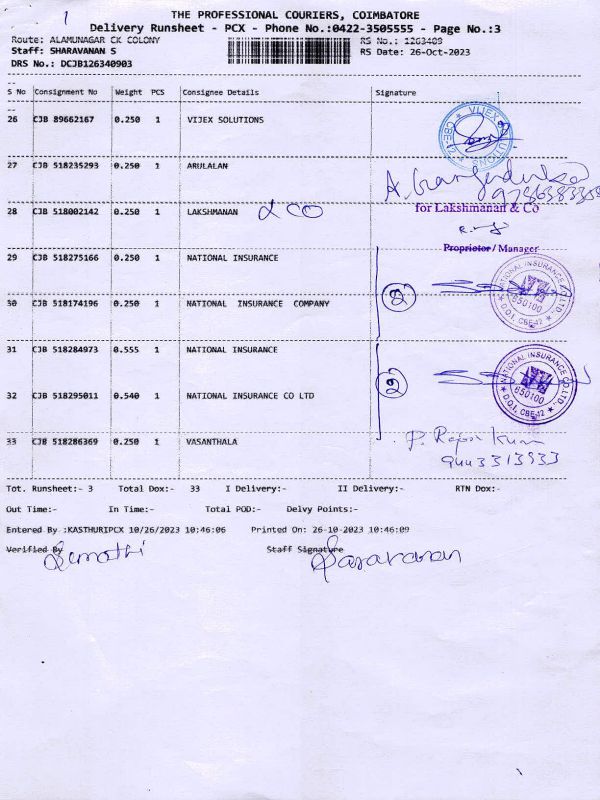 1
THE PROFESSIONAL COURIERS, COIMBATORE
Delivery Runsheet - PCX - Phone No.:0422-3505555 - Page No.:3
Route: ALAMUNAGAR CK COLONY RS No.: 1263409
Staff: SHARAVANAN S RS Date: 26-Oct-2023
DRS No.: DCJB126340903
S No Consignment No Weight PCS Consignee Details Signature
26 CJB 89662167 0.250 1 VIJEX SOLUTIONS
VIJEX SOLUTIONS
27 CJB 518235293 0.250 1 ARULALAN
28 CJB 518002142 0.250 1 LAKSHMANAN & CO
for Lakshmanan & Co
Proprietor / Manager
29 CJB 518275166 0.250 1 NATIONAL INSURANCE
30 CJB 518174196 0.250 1 NATIONAL INSURANCE COMPANY
NATIONAL INSURANCE CO.LTD.
650100
D.O.I, CBE-12
31 CJB 518284973 0.555 1 NATIONAL INSURANCE
32 CJB 518295011 0.540 1 NATIONAL INSURANCE CO LTD
NATIONAL INSURANCE CO.LTD.
650100
D.O.I, CBE-12
33 CJB 518286369 0.250 1 VASANTHALA
9443313933
Tot. Runsheet:- 3 Total Dox:- 33 I Delivery:- II Delivery:- RTN Dox:-
Out Time:- In Time:- Total POD:- Delvy Points:-
Entered By :KASTHURIPCX 10/26/2023 10:46:06 Printed On: 26-10-2023 10:46:09
Verified By Staff Signature
Saravanan